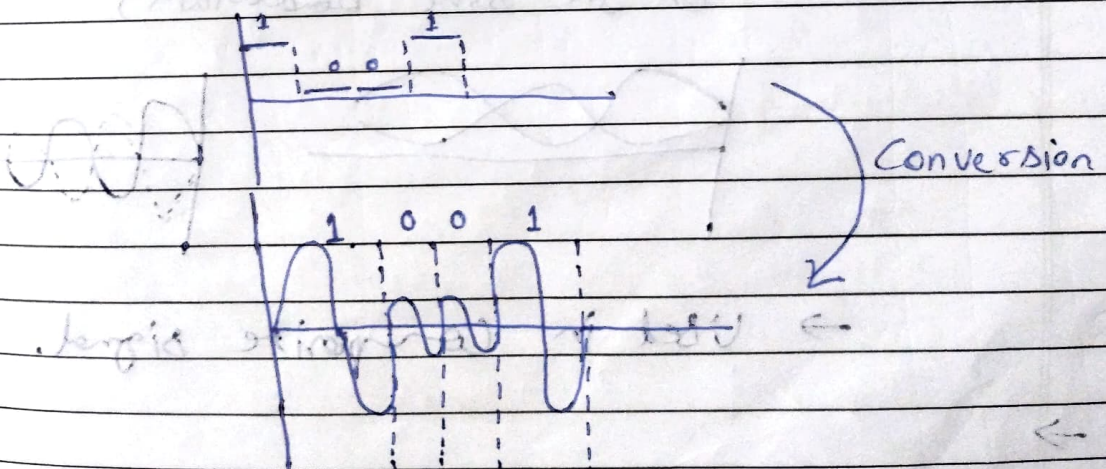 1 0 0 1
Conversion
1 0 0 1